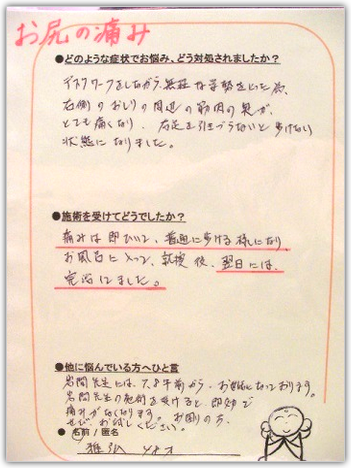 お尻の痛み
●どのような症状でお悩み、どう対処されましたか?
デスクワークをしながら、無理な姿勢をとった為、
右側のおしりの周辺の筋肉の奥が、
とても痛くなり、右足を引きづらないと歩けない
状態になりました。
●施術を受けてどうでしたか?
痛みは即ひいて、普通に歩ける様になり
お風呂に入って、就寝後、翌日には、
完治しました。
●他に悩んでいる方へひと言
岩間先生には、7,8年前から、お世話になっております。
岩間先生の施術を受けると、即効で
痛みがなくなります。お困りの方、
ぜひ、お試しください。
● 名前 / 匿名